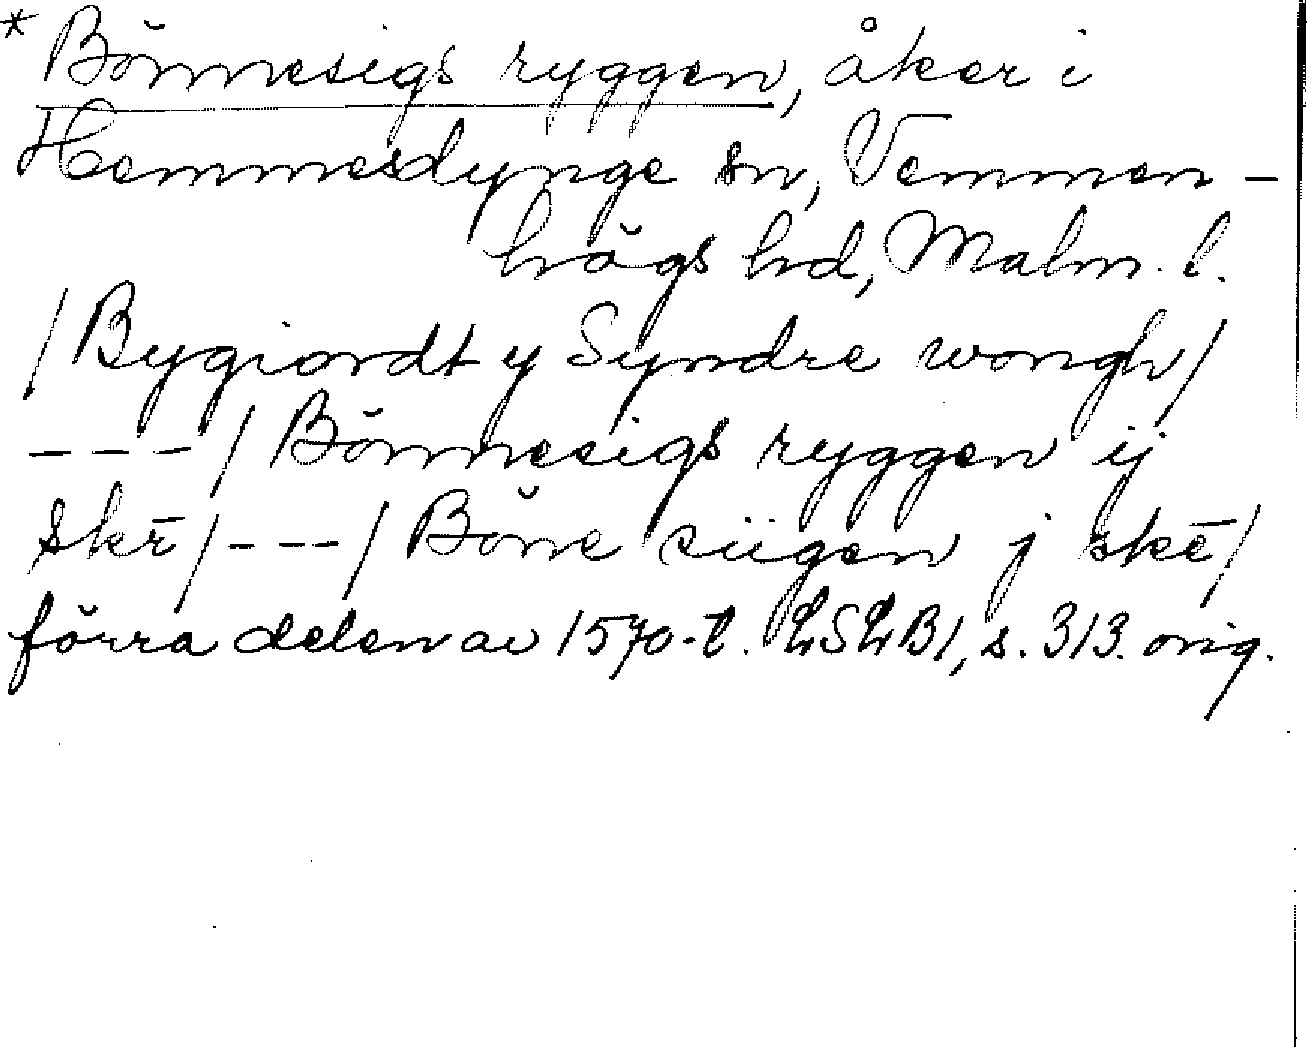 * Bönnesigs ryggen, åker i
Hemmesdynge sn, Vemmen-
högs hd, Malm. l.
/Bygiordt y Syndre wongh/
---/Bönnesigs ryggen ij
skē/---/Böne siigen j skē/
förra delen av 1570-t. LSLB1, s. 313. orig.